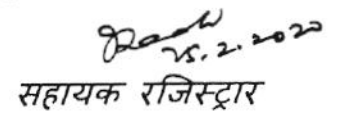 25.2.2020
सहायक रजिस्ट्रार